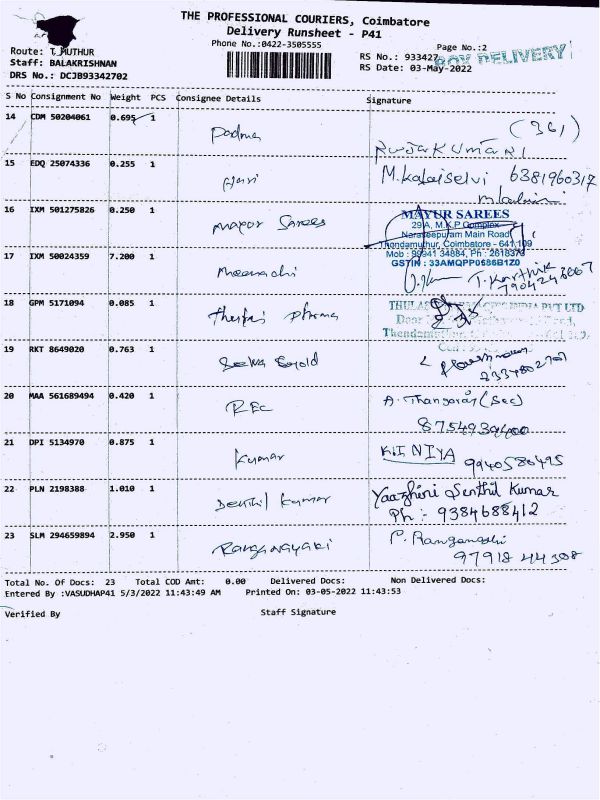 THE PROFESSIONAL COURIERS, Coimbatore
Delivery Runsheet - P41
Phone No.:0422-3505555
Page No.:2
BOY DELIVERY
Route: T.MUTHUR
Staff: BALAKRISHNAN
DRS No.: DCJB93342702
RS No.: 933427
RS Date: 03-May-2022
S No Consignment No Weight PCS Consignee Details Signature
14 CDM 50204061 0.695 1 Padma (361)
PUJAKUMARI
15 EDQ 25074336 0.255 1 M.Kalaiselvi 6381960317
16 IXM 501275826 0.250 1 Mayur Sarees
MAYUR SAREES
29/A, M.K.P Complex
Naraseepuram Main Road
Thondamuthur, Coimbatore - 641 109
Mob : 99941 34884, Ph : 2618373
GSTIN : 33AMQPP0686B1Z0
17 IXM 50024359 7.200 1 Meenachi T.Karthik
7904246667
18 GPM 5171094 0.085 1 Pharma
PVT LTD
19 RKT 8649020 0.763 1
20 MAA 561689494 0.420 1 REC A. Thangaraj (Sec)
8754939400
21 DPI 5134970 0.875 1 Kumar 9940586495
22 PLN 2198388 1.010 1 Senthil Kumar Yaazhini Senthil Kumar
Ph :- 9384688412
23 SLM 294659894 2.950 1 Ranganayaki
97918 44308
Total No. Of Docs: 23 Total COD Amt: 0.00 Delivered Docs: Non Delivered Docs:
Entered By :VASUDHAP41 5/3/2022 11:43:49 AM Printed On: 03-05-2022 11:43:53
Verified By Staff Signature